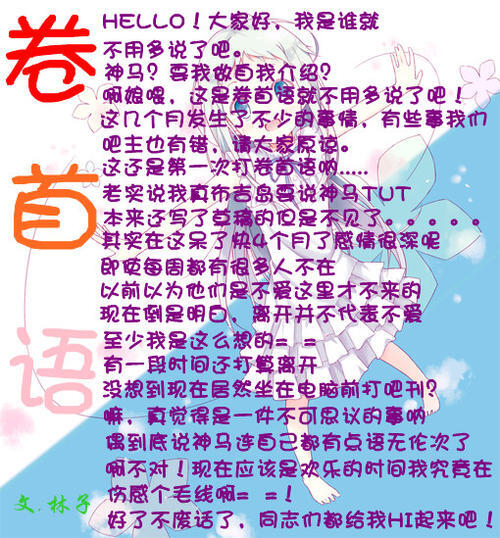 卷首语
HELLO！大家好，我是谁就
不用多说了吧。
神马？要我做自我介绍？
啊娘喂，这是卷首语就不用多说了吧！
这几个月发生了不少的事情，有些事我们
吧主也有错，请大家原谅。
这还是第一次打卷首语哟.....
老实说我真布吉岛要说神马TUT
本来还写了草稿的但是不见了。。。。。
其实在这呆了快4个月了感情很深呢
即使每周都有很多人不在
以前以为他们是不爱这里才不来的
现在倒是明白，离开并不代表不爱
至少我是这么想的= =
有一段时间还打算离开
没想到现在居然坐在电脑前打吧刊？
嘛，真觉得是一件不可思议的事哟
偶到底说神马连自己都有点语无伦次了
啊不对！现在应该是欢乐的时间我究竟在
伤感个毛线啊= =！
好了不废话了，同志们都给我HI起来吧！
文.林子